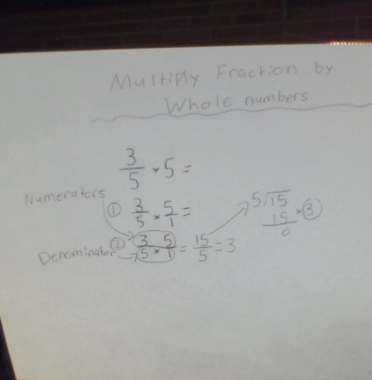 Multiply Fraction by
Whole numbers
3/5 × 5 =
Numerators
① 3/5 × 5/1 =
Denominator ② 3 5 / 5 × 1 = 15/5 = 3
5)15
15 × ③
0